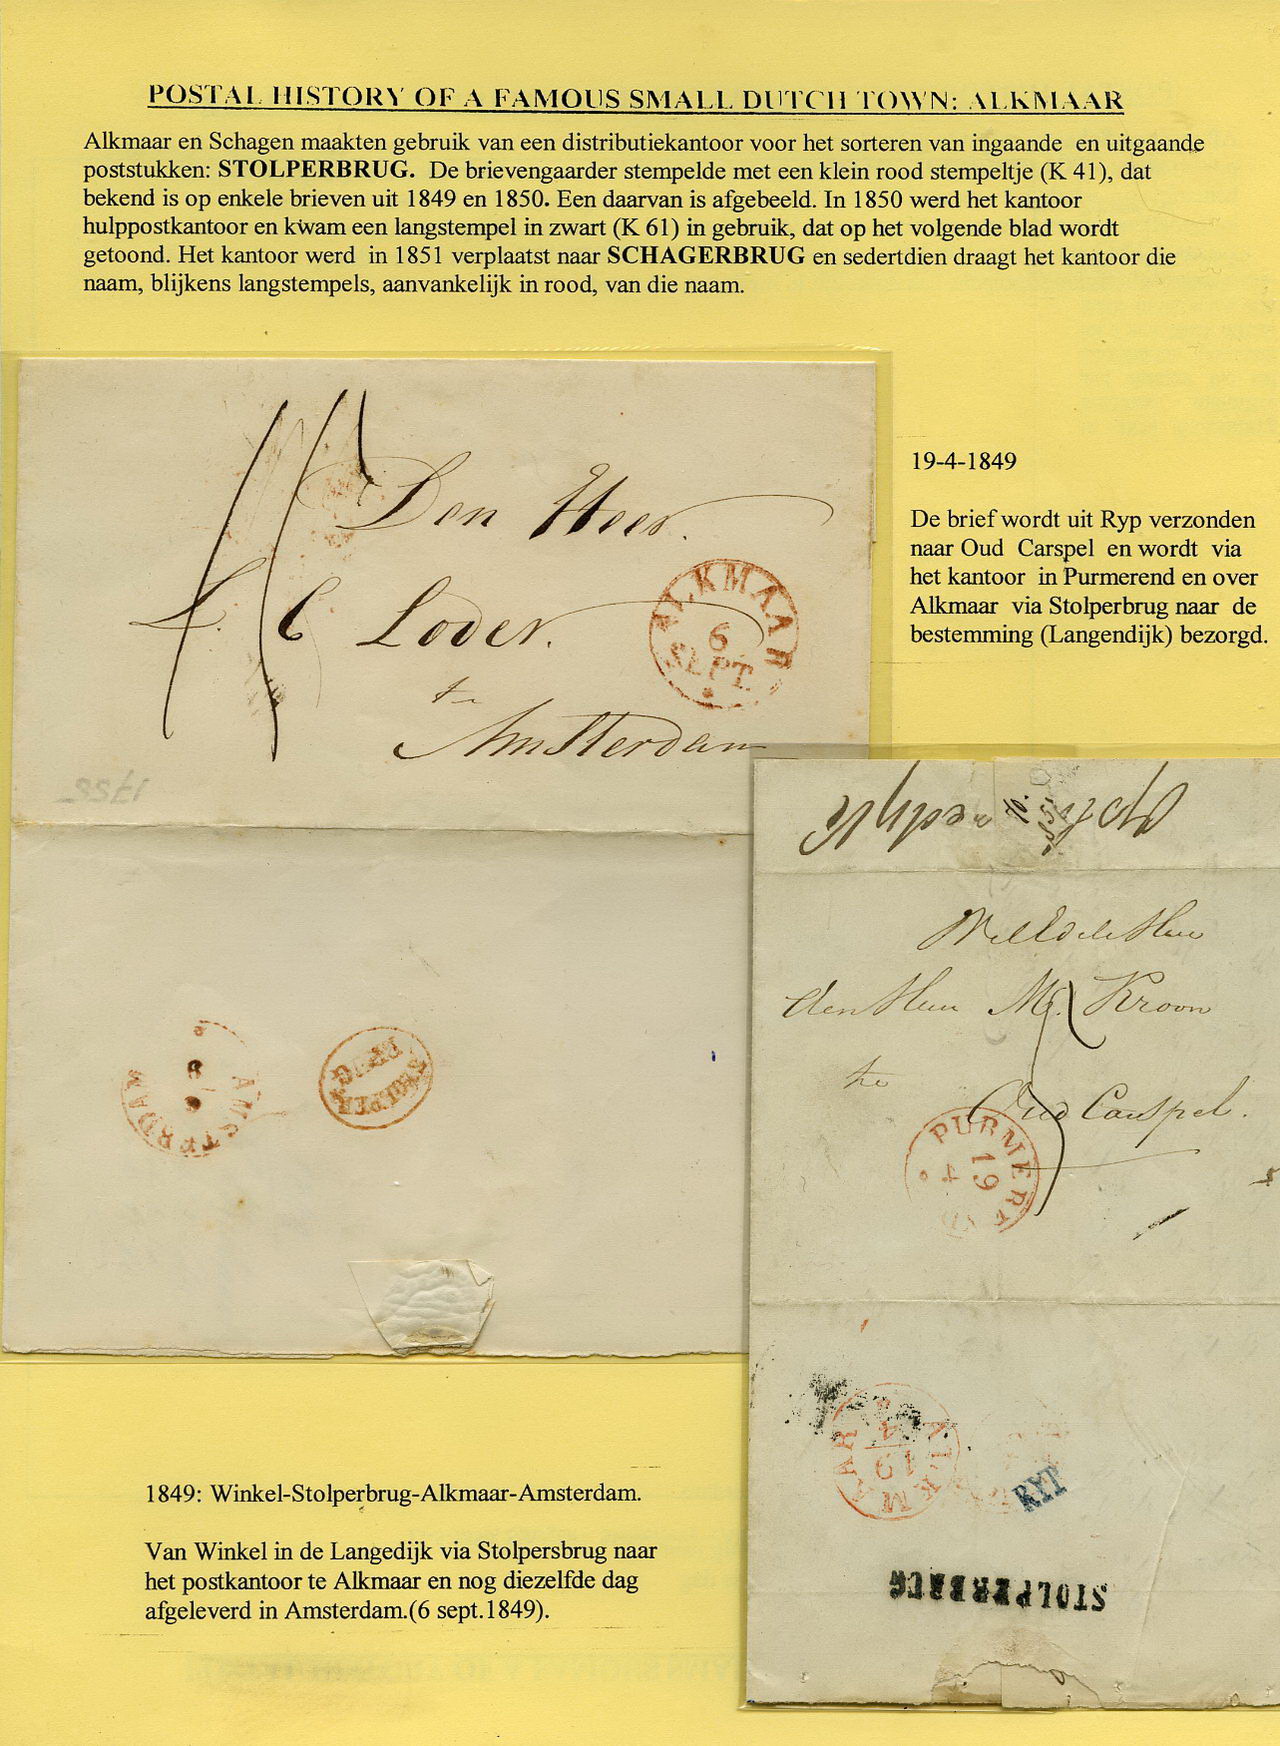 POSTAL HISTORY OF A FAMOUS SMALL DUTCH TOWN: ALKMAAR
Alkmaar en Schagen maakten gebruik van een distributiekantoor voor het sorteren van ingaande en uitgaande
poststukken: STOLPERBRUG. De brievengaarder stempelde met een klein rood stempeltje (K 41), dat
bekend is op enkele brieven uit 1849 en 1850. Een daarvan is afgebeeld. In 1850 werd het kantoor
hulppostkantoor en kwam een langstempel in zwart (K 61) in gebruik, dat op het volgende blad wordt
getoond. Het kantoor werd in 1851 verplaatst naar SCHAGERBRUG en sedertdien draagt het kantoor die
naam, blijkens langstempels, aanvankelijk in rood, van die naam.
Den Heer
L. C Loder.
te
Amsterdam
ALKMAAR
6
SEPT.
19-4-1849
De brief wordt uit Ryp verzonden
naar Oud Carspel en wordt via
het kantoor in Purmerend en over
Alkmaar via Stolperbrug naar de
bestemming (Langendijk) bezorgd.
WelEdele Heer
den Heer M. Kroon
te
Oud Carspel.
PURMEREND
19
4
AMSTERDAM
STOLPER
BRUG
ALKMAAR
19
4
RYP
STOLPERBRUG
1849: Winkel-Stolperbrug-Alkmaar-Amsterdam.
Van Winkel in de Langedijk via Stolpersbrug naar
het postkantoor te Alkmaar en nog diezelfde dag
afgeleverd in Amsterdam.(6 sept.1849).